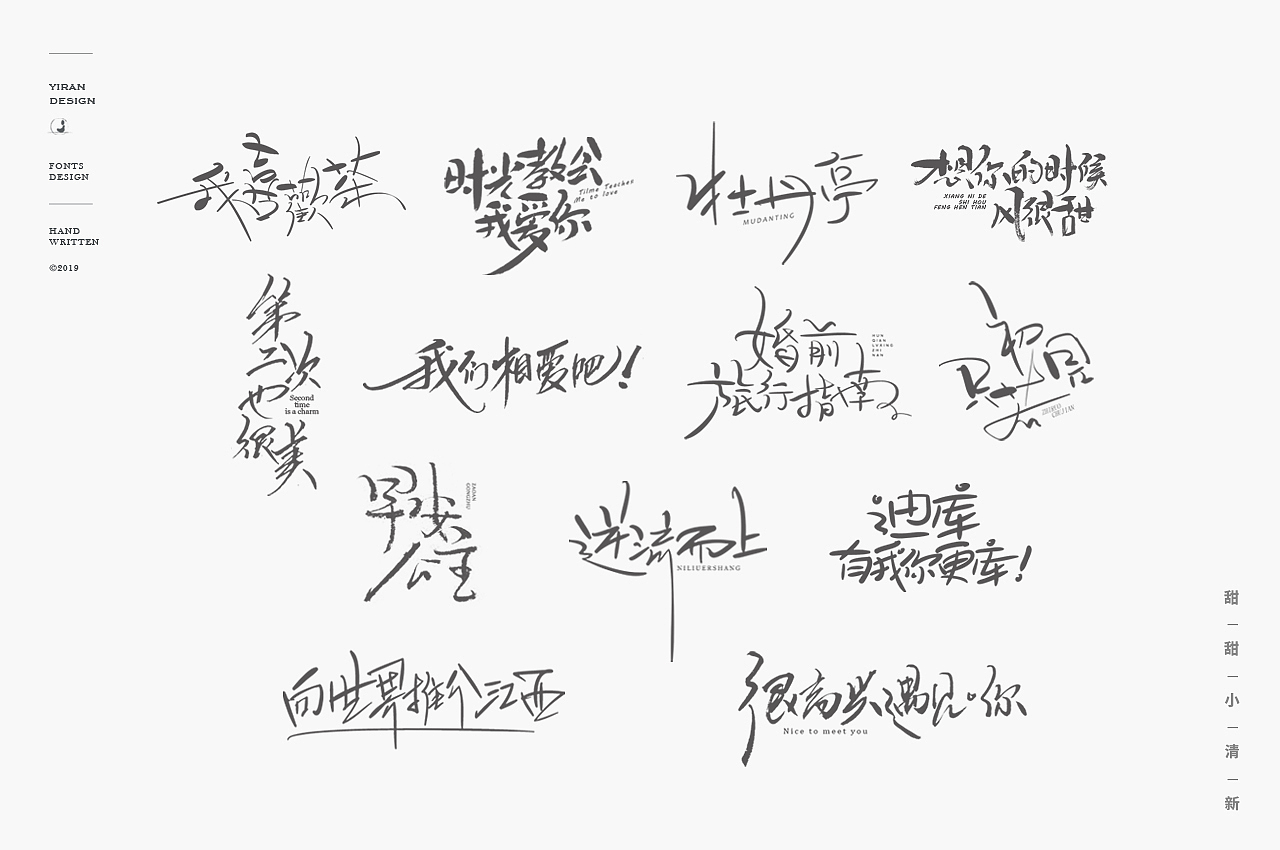 YIRAN
DESIGN
FONTS
DESIGN
HAND
WRITTEN
©2019
我喜歡茶
时光教会
我爱你
Tiime Teaches
Me to love
牡丹亭
MUDANTING
想你的时候
风很甜
XIANG NI DE
SHI HOU
FENG HEN TIAN
第
二次
也
很美
Second
time
is a charm
我们相爱吧!
婚前
旅行指南
HUN
QIAN
LVXING
ZHI
NAN
只如初見
早安
公主
ZAOAN
GONGZHU
逆流而上
NILIUERSHANG
迪库
有我你更库!
向世界推介江西
很高兴遇见你
Nice to meet you
甜
甜
小
清
新